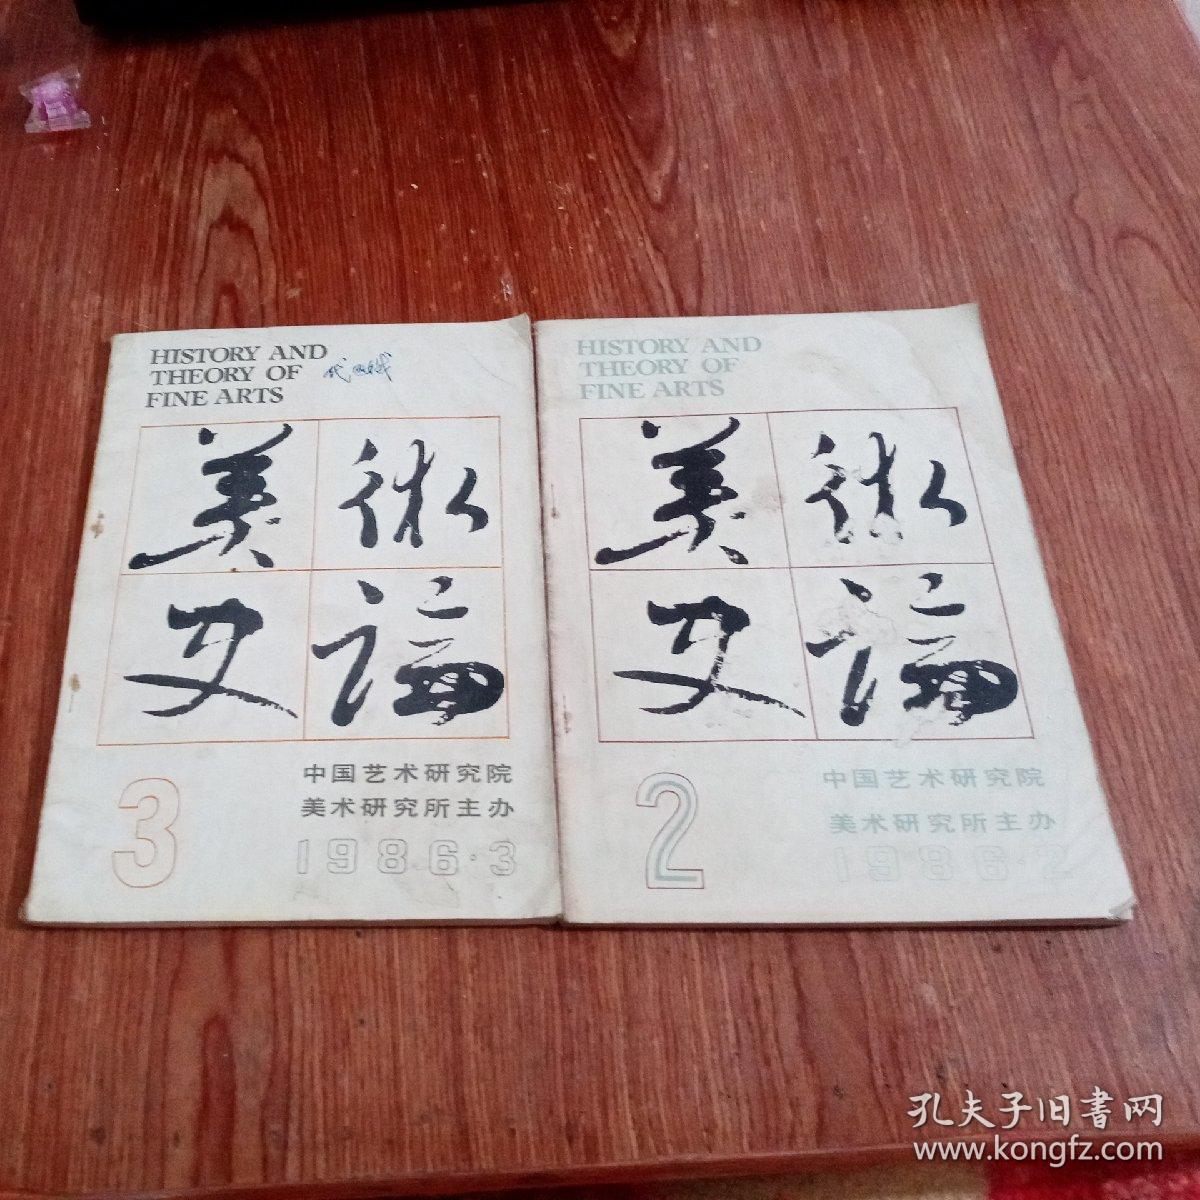 HISTORY AND
THEORY OF
FINE ARTS
美術
史論
3
中国艺术研究院
美术研究所主办
1986·3
HISTORY AND
THEORY OF
FINE ARTS
美術
史論
2
中国艺术研究院
美术研究所主办
1986·2
孔夫子旧書网
www.kongfz.com